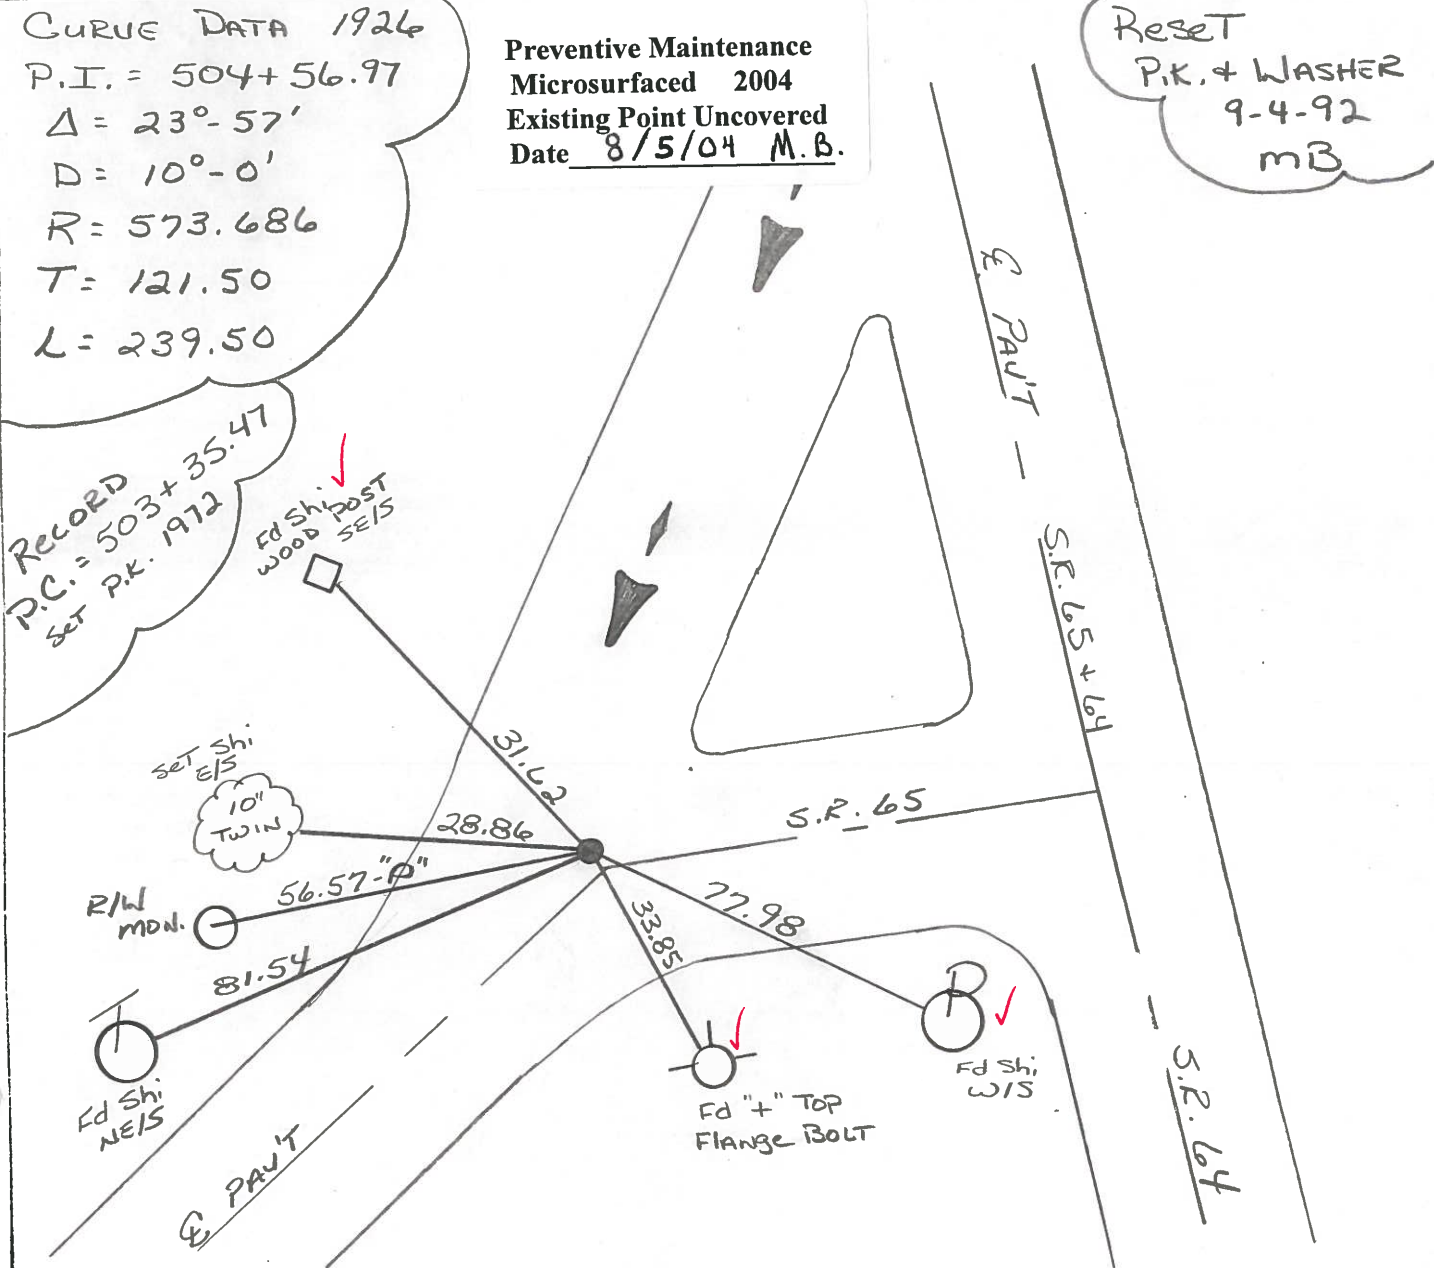 CURVE DATA 1926
P.I. = 504+56.97
Δ = 23°-57'
D = 10°-0'
R = 573.686
T = 121.50
L = 239.50
Preventive Maintenance
Microsurfaced 2004
Existing Point Uncovered
Date 8/5/04 M.B.
Reset
P.K. & WASHER
9-4-92
MB
RECORD
P.C. = 503+35.47
Set P.K. 1972
Fd Shi
WOOD POST
SE/S
℄ PAV'T
S.R. 65 & 64
31.62
Set Shi
E/S
10"
TWIN
28.86
S.R. 65
R/W
MON.
56.57-"P"
81.54
33.85
77.98
T
Fd Shi
NE/S
P
Fd Shi
W/S
Fd "+" TOP
Flange BOLT
℄ PAV'T
S.R. 64